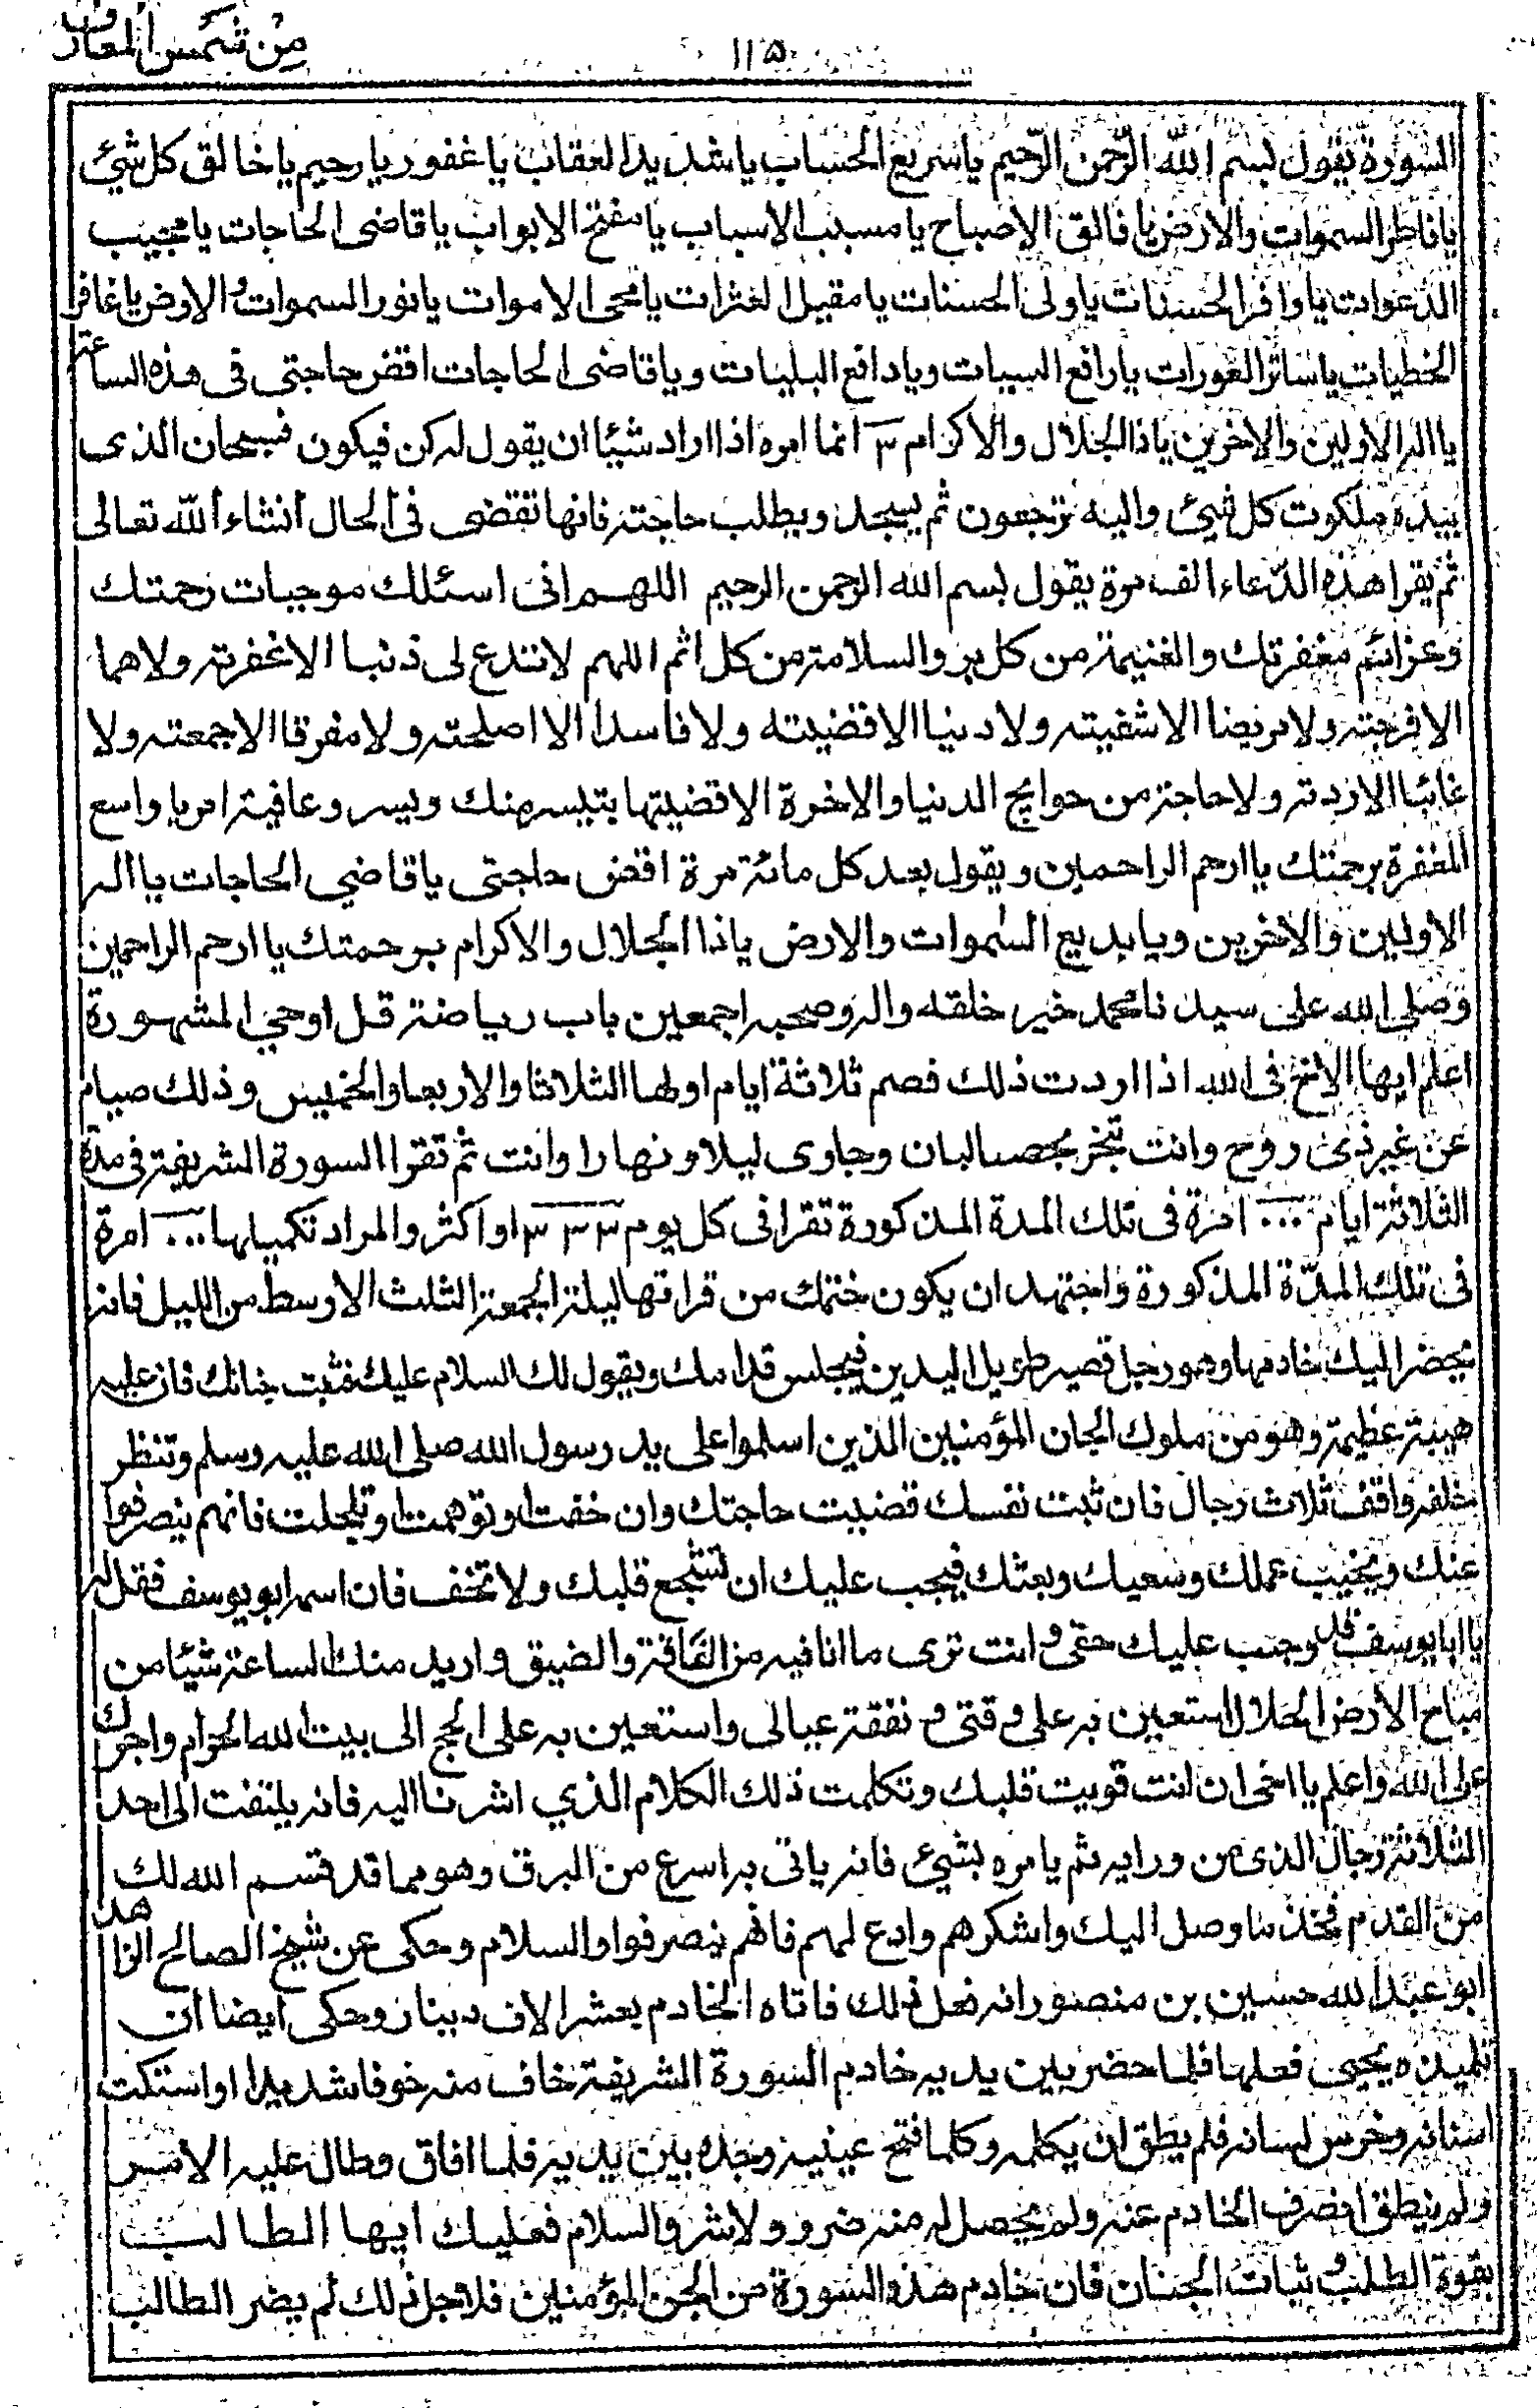 من شمس المعارف
١١٥
السورة يقول بسم الله الرّحمن الرّحيم ياسريع الحساب ياشديد العقاب ياغفور يارحيم ياخالق كل شئ
يافاطر السموات والارض يا فالق الاصباح يا مسبب الاسباب يا مفتح الابواب ياقاضى الحاجات يامجيب
الدعوات ياوافر الحسنات ياولى الحسنات يا مقيل العثرات يامحى الاموات يانور السموات والارض ياغافر
الخطيات ياساتر العورات يارافع السيبات ويادافع البليات وياقاضى الحاجات اقض حاجتى فى هذه الساعة
يااله الاولين والاخرين ياذا الجلال والاكرام ٣ انما امره اذا اراد شيئا ان يقول له كن فيكون فسبحان الذى
بيده ملكوت كل شئ واليه ترجعون ثم يسجد ويطلب حاجته فانها تقضى فى الحال انشاء الله تعالى
ثم يقرا هذه الدّعاء الف مرة يقول بسم الله الرحمن الرحيم اللهم انى اسئلك موجبات رحمتك
وعزائم مغفرتك والغنيمة من كل بر والسلامة من كل اثم اللهم لاتدع لى ذنبا الا غفرته ولاهما
الا فرجته ولا مريضا الا شفيته ولا دينا الا قضيته ولا فاسدا الا اصلحته ولا مفرقا الا جمعته ولا
غائبا الا رددته ولا حاجة من حوايج الدنيا والاخرة الا قضيتها بتيسر منك ويسر وعافية يا واسع
المغفرة برحمتك ياارحم الراحمين ويقول بعد كل مائة مرة اقض حاجتى ياقاضي الحاجات يااله
الاولين والاخرين ويابديع السموات والارض ياذا الجلال والاكرام برحمتك ياارحم الراحمين
وصلى الله على سيدنا محمد خير خلقه واله وصحبه اجمعين باب رياضة قل اوحي المشهورة
اعلم ايها الاخ فى الله اذا اردت ذلك فصم ثلاثة ايام اولها الثلاثا والاربعا والخميس وذلك صيام
عن غير ذى روح وانت تبخر بحصالبان وجاوى ليلا ونهارا وانت ثم تقرا السورة الشريفة فى مدة
الثلاثة ايام ١٠٠٠ مرة فى تلك المدة المذكورة تقرا فى كل يوم ٣٣٣ او اكثر والمراد تكميلها ١٠٠٠ مرة
فى تلك المدّة المذكورة واجتهد ان يكون ختمك من قراتها ليلة الجمعة الثلث الاوسط من الليل فانه
يحضر اليك خادمها وهو رجل قصير طويل اليدين فيجلس قدامك ويقول لك السلام عليك فثبت جنانك فان عليه
هيبة عظيمة وهو من ملوك الجان المؤمنين الذين اسلموا على يد رسول الله صلى الله عليه وسلم وتنظر
خلفه واقف ثلاث رجال فان ثبت نفسك قضيت حاجتك وان خفت او توهمت او تلجلجت فانهم ينصرفوا
عنك ويخيب عملك وسعيك وبعثك فيجب عليك ان تشجع قلبك ولا تخف فان اسمه ابو يوسف فقل له
يا ابا يوسف قد وجب عليك حقى وانت ترى ما انا فيه من الفاقة والضيق واريد منك الساعة شيئا من
مباح الارض الحلال استعين به على وقتى ونفقة عيالى واستعين به على الحج الى بيت الله الحرام واجرك
على الله واعلم يااخى ان انت قويت قلبك وتكلمت ذلك الكلام الذي اشرنا اليه فانه يلتفت الى احد
الثلاثة رجال الذى من ورايه ثم يامره بشئ فانه ياتى به اسرع من البرق وهو مما قد قسم الله لك
من القدم فخذ ما وصل اليك واشكرهم وادع لهم فانهم ينصرفوا والسلام وحكى عن شيخ الصالح الزاهد
ابو عبد الله حسين بن منصور انه فعل ذلك فاتاه الخادم بعشر الاف دينار وحكى ايضا ان
تلميذه يحيى فعلها فلما حضر بين يديه خادم السورة الشريفة خاف منه خوفا شديدا واستكت
اسنانه وخرس لسانه فلم يطق ان يكلمه وكلما فتح عينيه وجده بين يديه فلما افاق وطال عليه الامر
ولم ينطق انصرف الخادم عنه ولم يحصل له منه ضرر ولا شر والسلام فعليك ايها الطالب
بقوة الطلب وثبات الجنان فان خادم هذه السورة من الجن المؤمنين فلاجل ذلك لم يضر الطالب